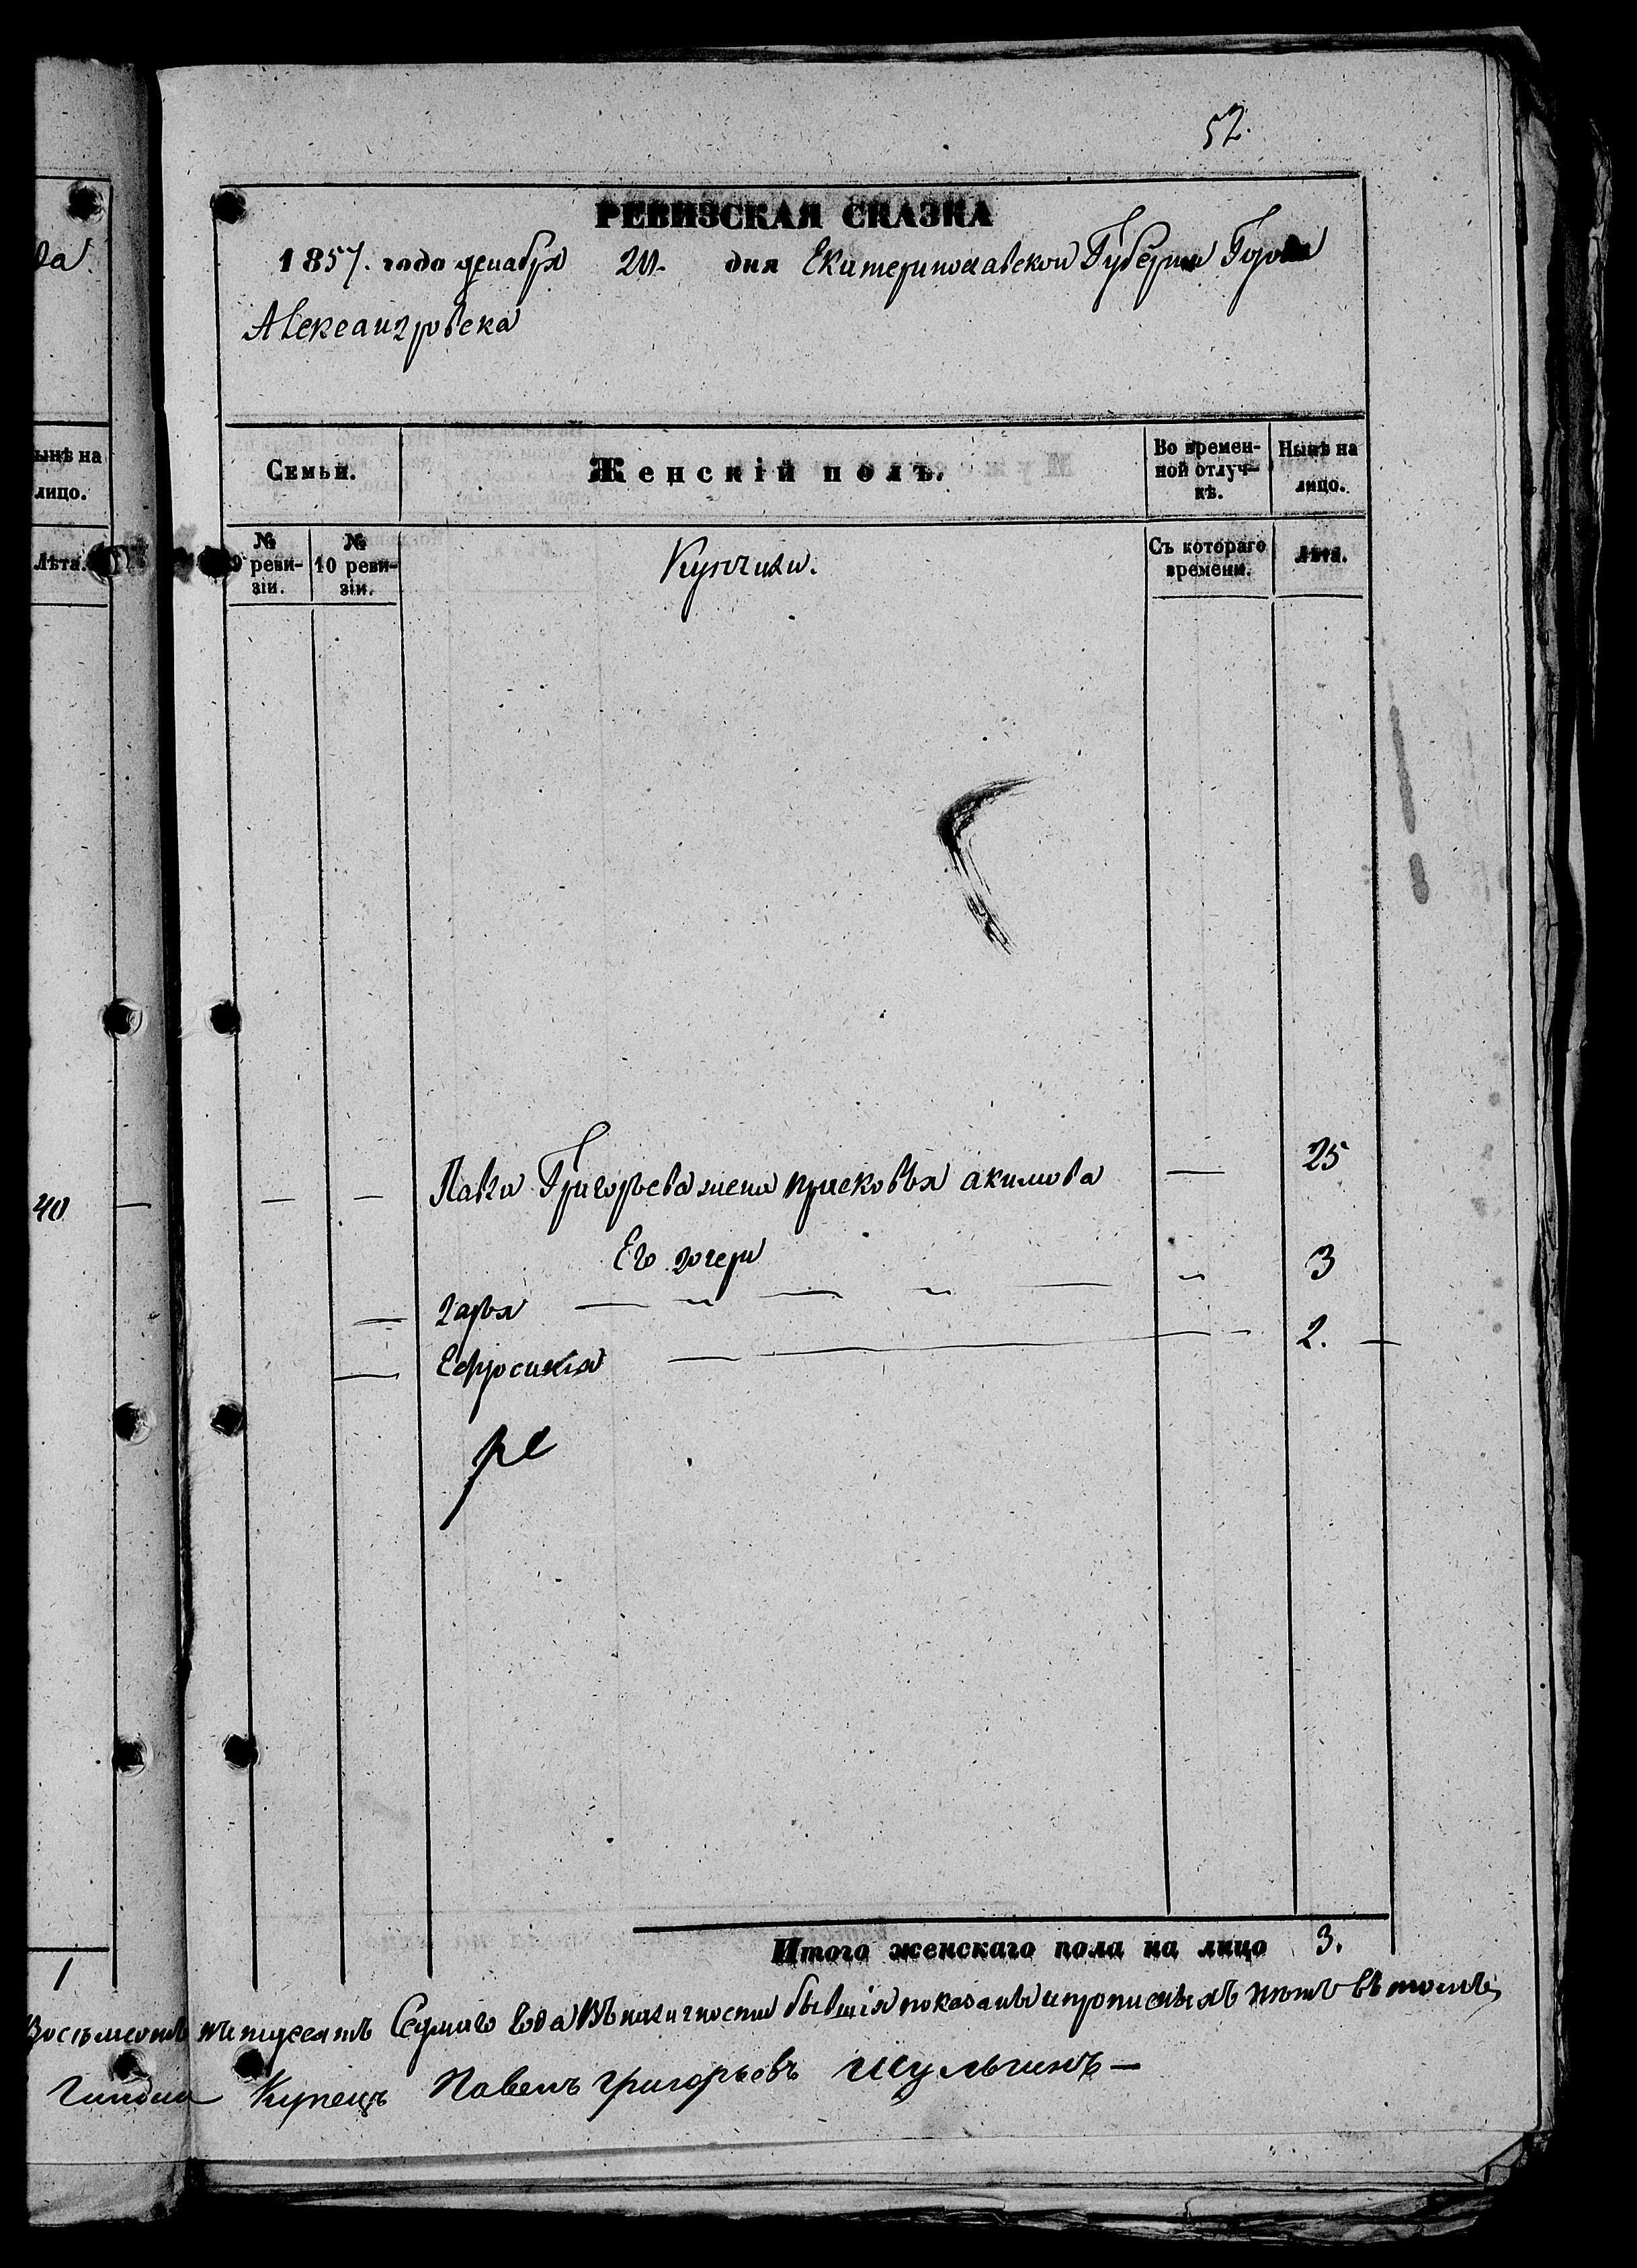 52.
да
РЕВИЗСКАЯ СКАЗКА
1857. года декабря 20. дня Екатеринославской Губернии Города
Александровска
ынѣ на
лицо.
Лѣта.
Семьи.
Женскій полъ.
Во времен-
ной отлуч-
кѣ.
Нынѣ на
лицо.
№
9 реви-
зіи.
№
10 реви-
зіи.
Купчихи.
Съ котораго
времени.
Лѣта.
40 — — — Павла Григорьева жена прасковья акимова — 25
Его дочери
— дарья — „ — „ — „ 3
— Ефросинія — 2. —
Итого женскаго пола на лицо 3.
1
Восьмсотъ пятдесятъ Седмаго года Въ наличности бывшія показаны и прописныхъ нѣтъ въ томъ
Гильдіи Купецъ Павелъ григорьевъ Шульгинъ —